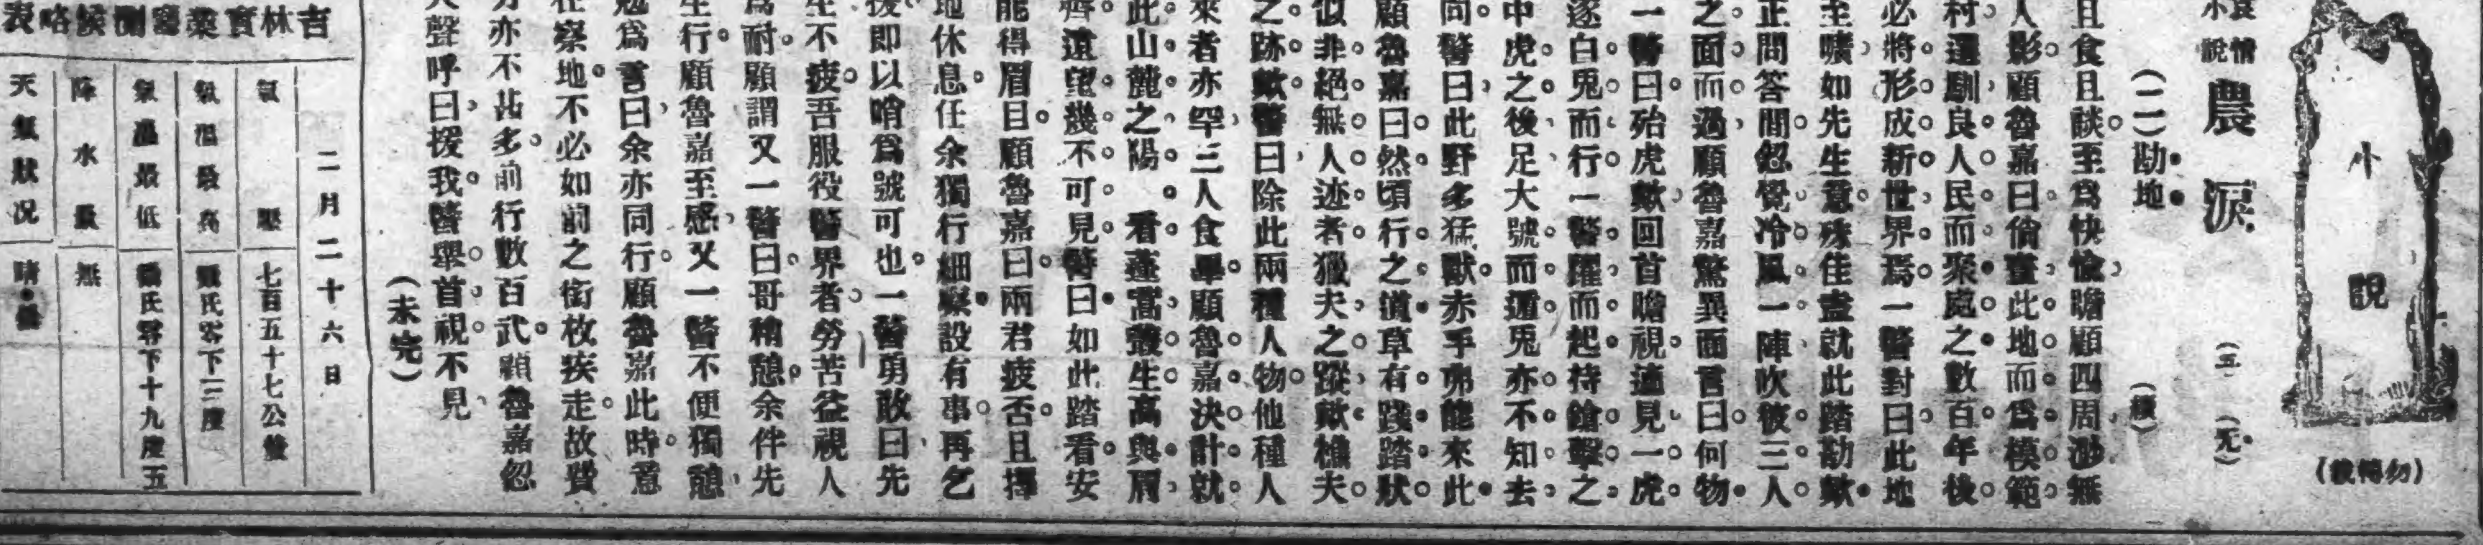 小說
(勿轉載)
哀情小說 農淚 (五) (无)
(二)勘地 (續)
且食且談至爲快愉瞻顧四周渺無
人影顧魯嘉曰倘畫此地而爲模範
村選馴良人民而聚處之數百年後
必將形成新世界焉一警對曰此地
至曠如先生意殊佳盡就此踏勘歟
正問答間忽覺冷風一陣吹彼三人
之面而過顧魯嘉驚異而言曰何物
一警曰殆虎歟回首瞻視適見一虎
逐白兎而行一警躍而起持鎗擊之
中虎之後足大號而遁兎亦不知去
向警曰此野多猛獸赤手弗能來此
顧魯嘉曰然頃行之道草有踐踏狀
似非絕無人迹者獵夫之蹤歟樵夫
之跡歟警曰除此兩種人物他種人
來者亦罕三人食畢顧魯嘉決計就
此山麓之陽看蓬蒿叢生高與肩
齊遠望幾不可見警曰如此踏看安
能得眉目顧魯嘉曰兩君疲否且擇
地休息任余獨行細察設有事再乞
援即以哨爲號可也一警勇敢曰先
生不疲吾服役警界者勞苦益視人
爲耐顧謂又一警曰哥稍憩余伴先
生行顧魯嘉至感又一警不便獨憩
勉爲言曰余亦同行顧魯嘉此時意
在察地不必如前之銜枚疾走故費
力亦不甚多前行數百武顧魯嘉忽
大聲呼曰援我警舉首視不見
(未完)
吉林實業廳測候略表
二月二十六日
氣壓 七百五十七公釐
氣溫最高 攝氏零下三度
氣溫最低 攝氏零下十九度五
降水量 無
天氣狀况 晴